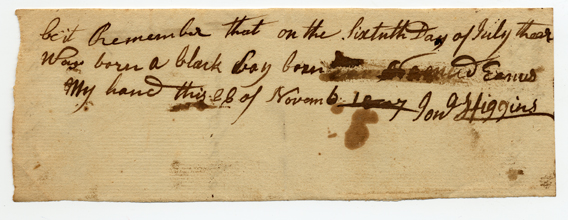 be it Remember that on the Sixtuth Day of July
Was born a black boy born Named
My hand this 28 of Novemb Jon Higgins